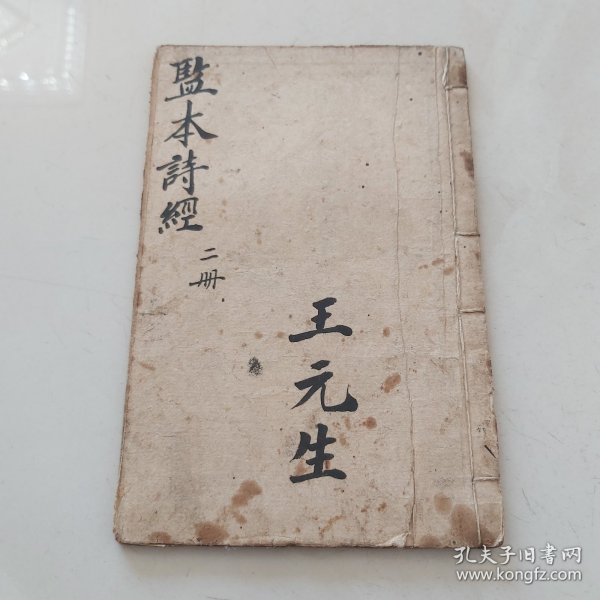 監本詩經
二册
王元生
孔夫子旧書网
www.kongfz.com